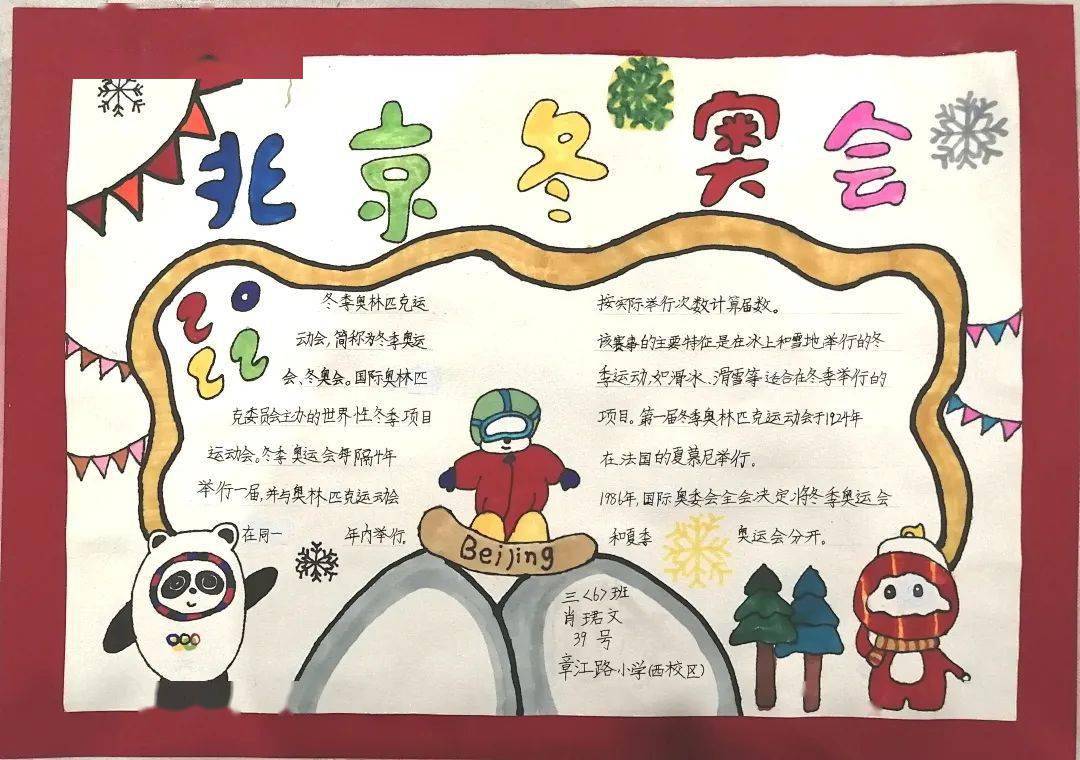 北京冬奥会
2022
冬季奥林匹克运
动会,简称为冬季奥运
会、冬奥会。国际奥林匹
克委员会主办的世界性冬季项目
运动会。冬季奥运会每隔4年
举行一届,并与奥林匹克运动会
在同一 年内举行.
按实际举行次数计算届数。
该赛事的主要特征是在冰上和雪地举行的冬
季运动,如滑冰、滑雪等适合在冬季举行的
项目。第一届冬季奥林匹克运动会于1924年
在法国的夏慕尼举行。
1986年,国际奥委会全会决定将冬季奥运会
和夏季 奥运会分开。
Beijing
三<6>班
肖珺文
39号
章江路小学(西校区)